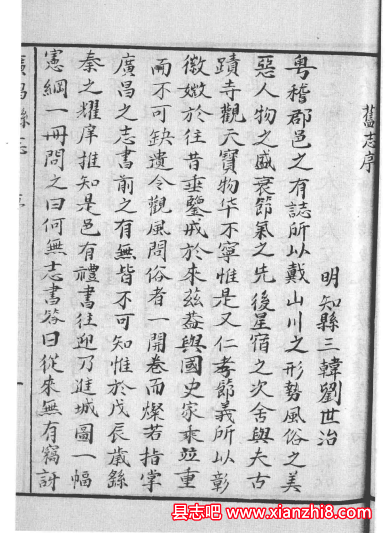 舊志序
明知縣三韓劉世治
粵稽郡邑之有誌所以載山川之形勢風俗之美
惡人物之盛衰節氣之先後星宿之次舍與夫古
蹟寺觀天寶物华不寧惟是又仁孝節義所以彰
徽媺於往昔垂鑒戒於來茲蓋與國史家乘竝重
而不可缺遺令觀風問俗者一開卷而燦若指掌
廣昌之志書前之有無皆不可知惟於戊辰歲餘
秦之耀庠推知是邑有禮書往迎乃進城圖一幅
憲綱一冊問之曰何無志書答曰從來無有竊訝
廣昌縣志
序
县志吧 www.xianzhi8.com
县志吧 www.xianzhi8.com